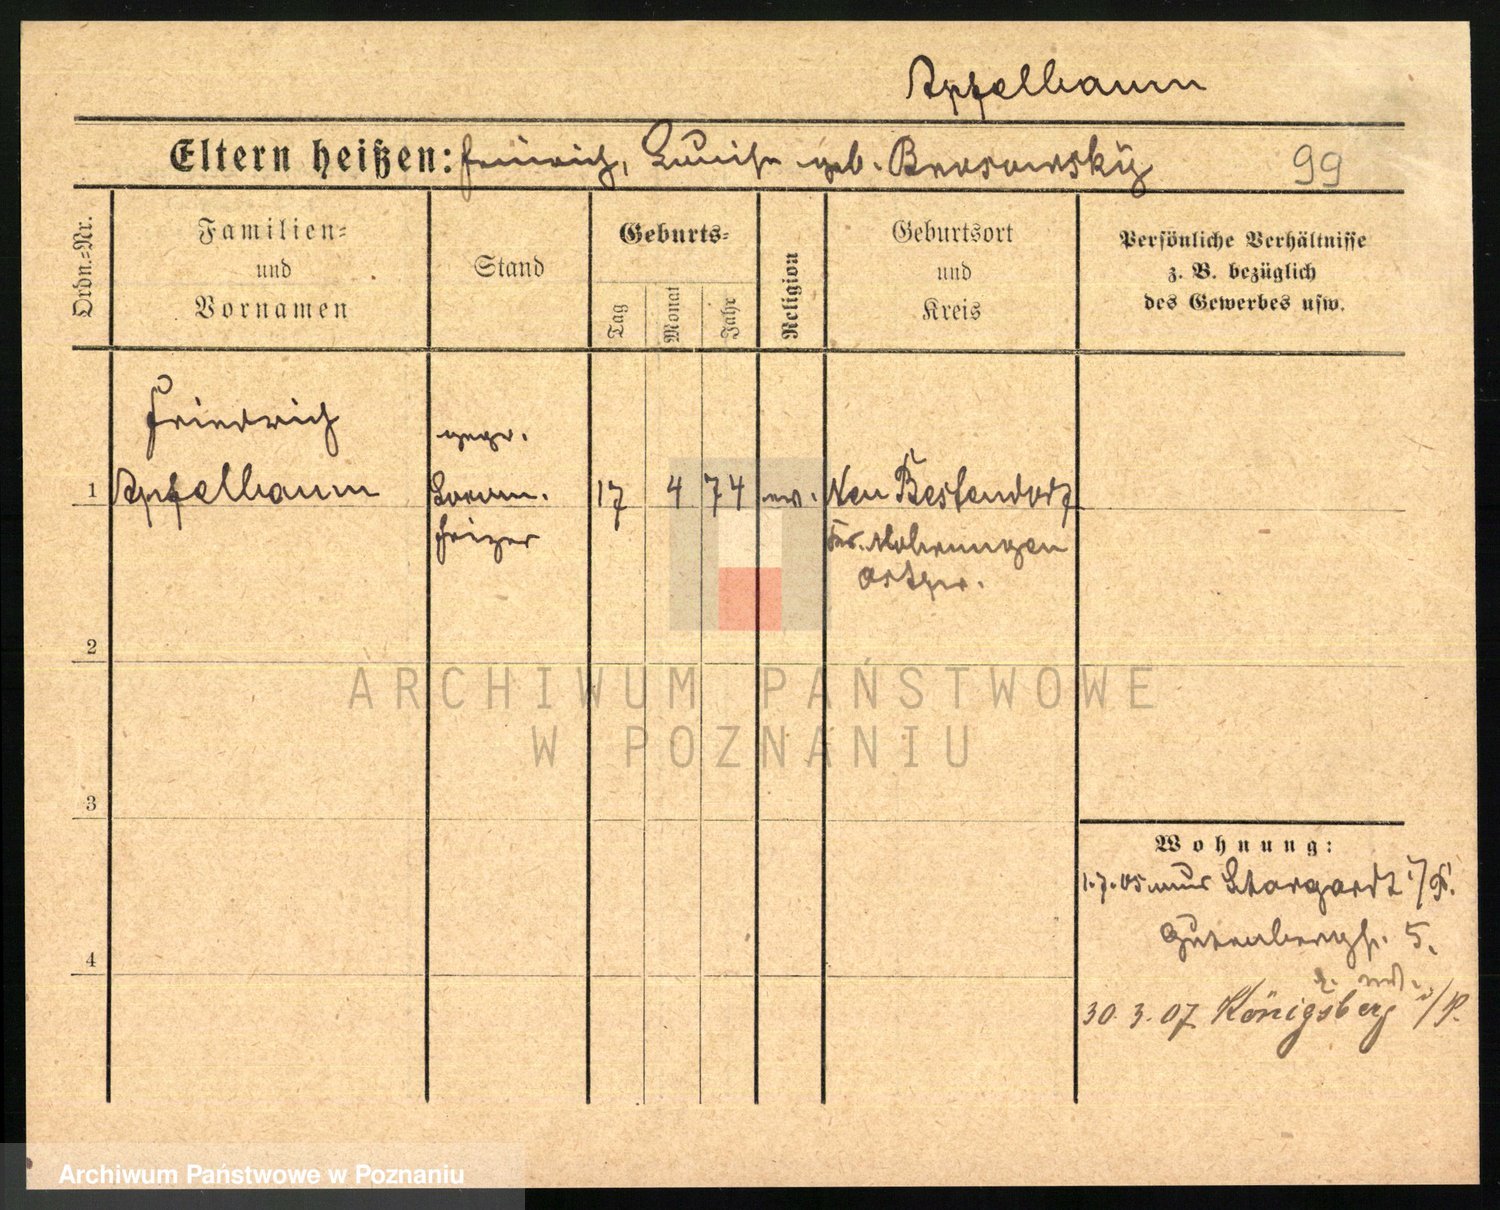 Apfelbaum
Eltern heißen: Heinrich, Luise geb. Brosowsky 99
Ordn.=Nr.
Familien=
und
Vornamen
Stand
Geburts=
Tag
Monat
Jahr
Religion
Geburtsort
und
Kreis
Persönliche Verhältnisse
z. B. bezüglich
des Gewerbes usw.
Friedrich
gepr.
1 Apfelbaum Locom. 17 4 74 ev. Neu Bestendorf
heizer
Kr. Mohrungen
Ostpr.
2
3
4
Wohnung:
1.7.05 aus Stargardt i/P.
Gutenbergst. 5.
30. 3. 07 Königsberg i/P.
ARCHIWUM PAŃSTWOWE
W POZNANIU
Archiwum Państwowe w Poznaniu